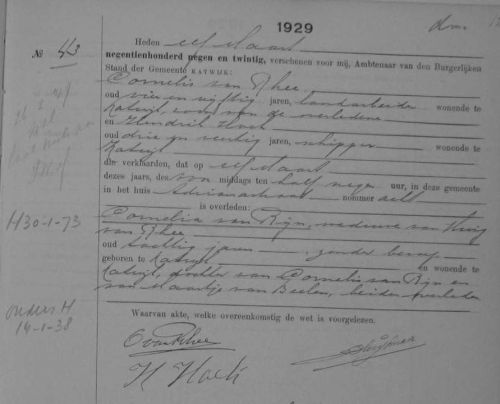 1929
Nº 43
Heden elf Maart
negentienhonderd negen en twintig, verschenen voor mij, Ambtenaar van den Burgerlijken
Stand der Gemeente KATWIJK:
Cornelis van Rhee
oud vier en vijftig jaren, landarbeider wonende te
Katwijk, zoon van de overledene
en Hendrik Hoek
oud drie en veertig jaren, schipper wonende te
Katwijk
die verklaarden, dat op elf Maart
dezes jaars, des voor middags ten half negen uur, in deze gemeente
in het huis Adrianastraat nommer acht
is overleden:
Cornelia van Rijn, weduwe van
van Rhee
oud jaren, zonder beroep
geboren te Katwijk en wonende te
Katwijk, dochter van Cornelis van Rijn en
van Maartje van Beelen, beiden overleden
Waarvan akte, welke overeenkomstig de wet is voorgelezen.
C van Rhee
H Hoek
H30-1-73
onders H
14-1-38